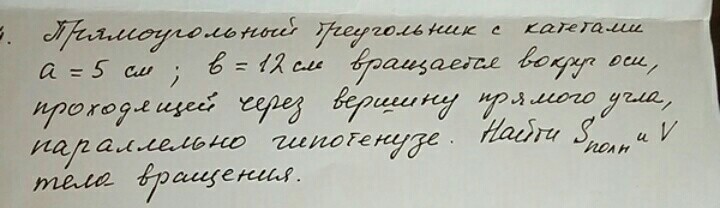 Прямоугольный треугольник с катетами
a = 5 см; b = 12 см вращается вокруг оси,
проходящей через вершину прямого угла,
параллельно гипотенузе. Найти Sполн и V
тела вращения.